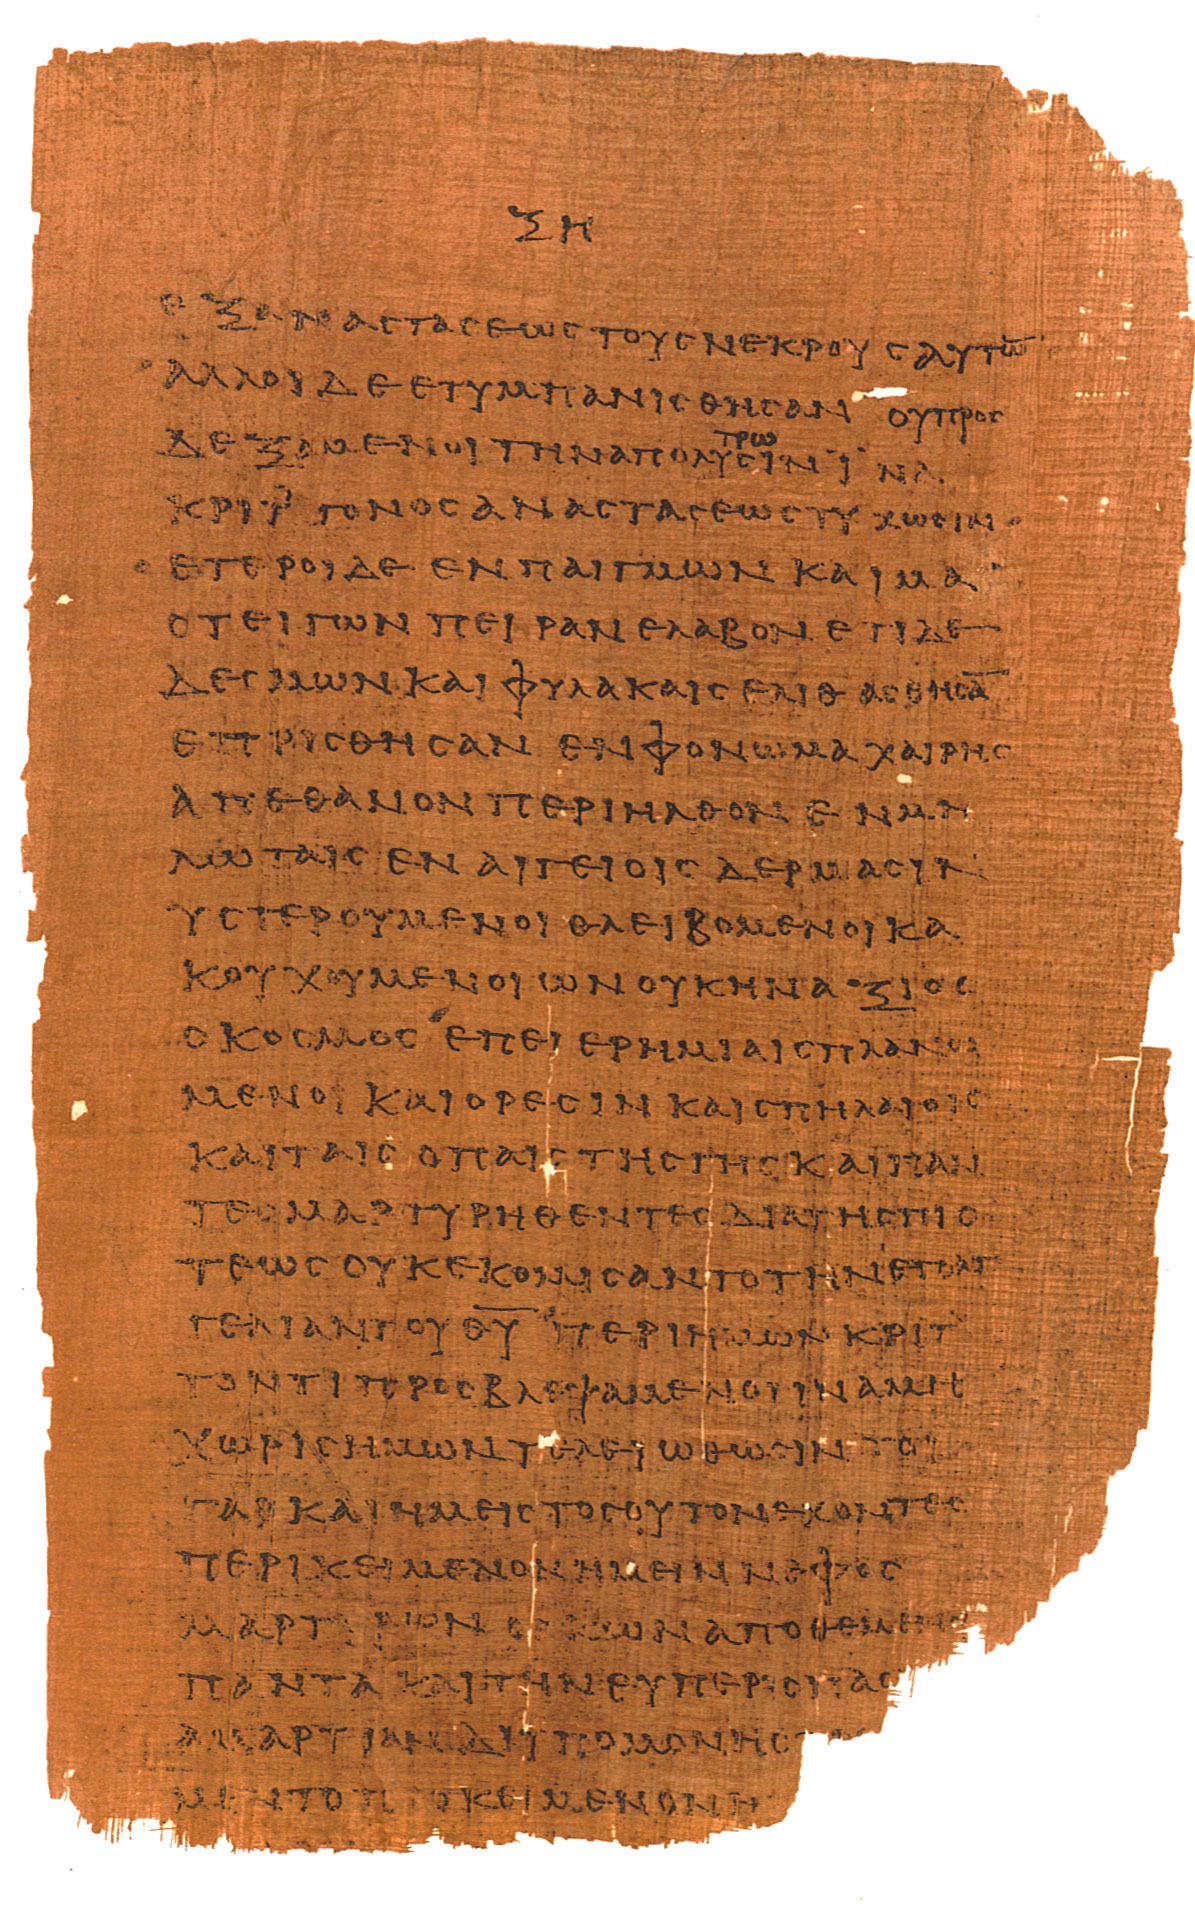 ΞΗ
ΕΞΑΝΑΣΤΑΣΕΩΣΤΟΥΣΝΕΚΡΟΥΣΑΥΤΩ̅
ΑΛΛΟΙΔΕΕΤΥΜΠΑΝΙΣΘΗΣΑΝ ΟΥΠΡΟΣ
ΤΡΩ
ΔΕΞΑΜΕΝΟΙΤΗΝΑΠΟΛΥΣΙΝΪΝΑ
ΚΡΙΤΤΟΝΟΣΑΝΑΣΤΑΣΕΩΣΤΥΧΩΣΙΝ
ΕΤΕΡΟΙΔΕ ΕΝΠΑΙΓΜΩΝ ΚΑΙΜΑ
ΣΤΕΙΓΩΝ ΠΕΙΡΑΝΕΛΑΒΟΝΕΤΙΔΕ
ΔΕΣΜΩΝΚΑΙΦΥΛΑΚΑΙΣΕΛΙΘΑΣΘΗΣΑ̅
ΕΠΡΙΣΘΗΣΑΝ ΕΝΦΟΝΩΜΑΧΑΙΡΗΣ
ΑΠΕΘΑΝΟΝΠΕΡΙΗΛΘΟΝΕΝΜΗ
ΛΩΤΑΙΣΕΝΑΙΓΕΙΟΙΣΔΕΡΜΑΣΙΝ
ΥΣΤΕΡΟΥΜΕΝΟΙΘΛΕΙΒΟΜΕΝΟΙΚΑ
ΚΟΥΧΟΥΜΕΝΟΙΩΝΟΥΚΗΝΑΞΙΟΣ
ΟΚΟΣΜΟΣ ΕΠΕΙΕΡΗΜΙΑΙΣΠΛΑΝΩ
ΜΕΝΟΙΚΑΙΟΡΕΣΙΝΚΑΙΣΠΗΛΑΙΟΙΣ
ΚΑΙΤΑΙΣΟΠΑΙΣΤΗΣΓΗΣΚΑΙΠΑΝ
ΤΕΣΜΑΡΤΥΡΗΘΕΝΤΕΣΔΙΑΤΗΣΠΙΣ
ΤΕΩΣΟΥΚΕΚΟΜΙΣΑΝΤΟΤΗΝΕΠΑΓ
ΓΕΛΙΑΝΤΟΥΘ̅Υ̅ ΠΕΡΙΗΜΩΝΚΡΙΤ
ΤΟΝΤΙΠΡΟΣΒΛΕΨΑΜΕΝΟΥΙΝΑΜΗ
ΧΩΡΙΣΗΜΩΝΤΕΛΕΙΩΘΩΣΙΝΤΟΙ
ΓΑΡΚΑΙΗΜΕΙΣΤΟΣΟΥΤΟΝΕΧΟΝΤΕΣ
ΠΕΡΙΚΕΙΜΕΝΟΝΗΜΕΙΝΝΕΦΟΣ
ΜΑΡΤΥΡΩΝ ΑΠΟΘΕΜΕΝΟΙ
ΠΑΝΤΑΚΑΙΤΗΝΕΥΠΕΡΙΣΠΑΣ
ΑΜΑΡΤΙΑΝΔΙΥΠΟΜΟΝΗΣΤ
ΜΕΝΤΟΠΡΟΚΕΙΜΕΝΟΝΗ